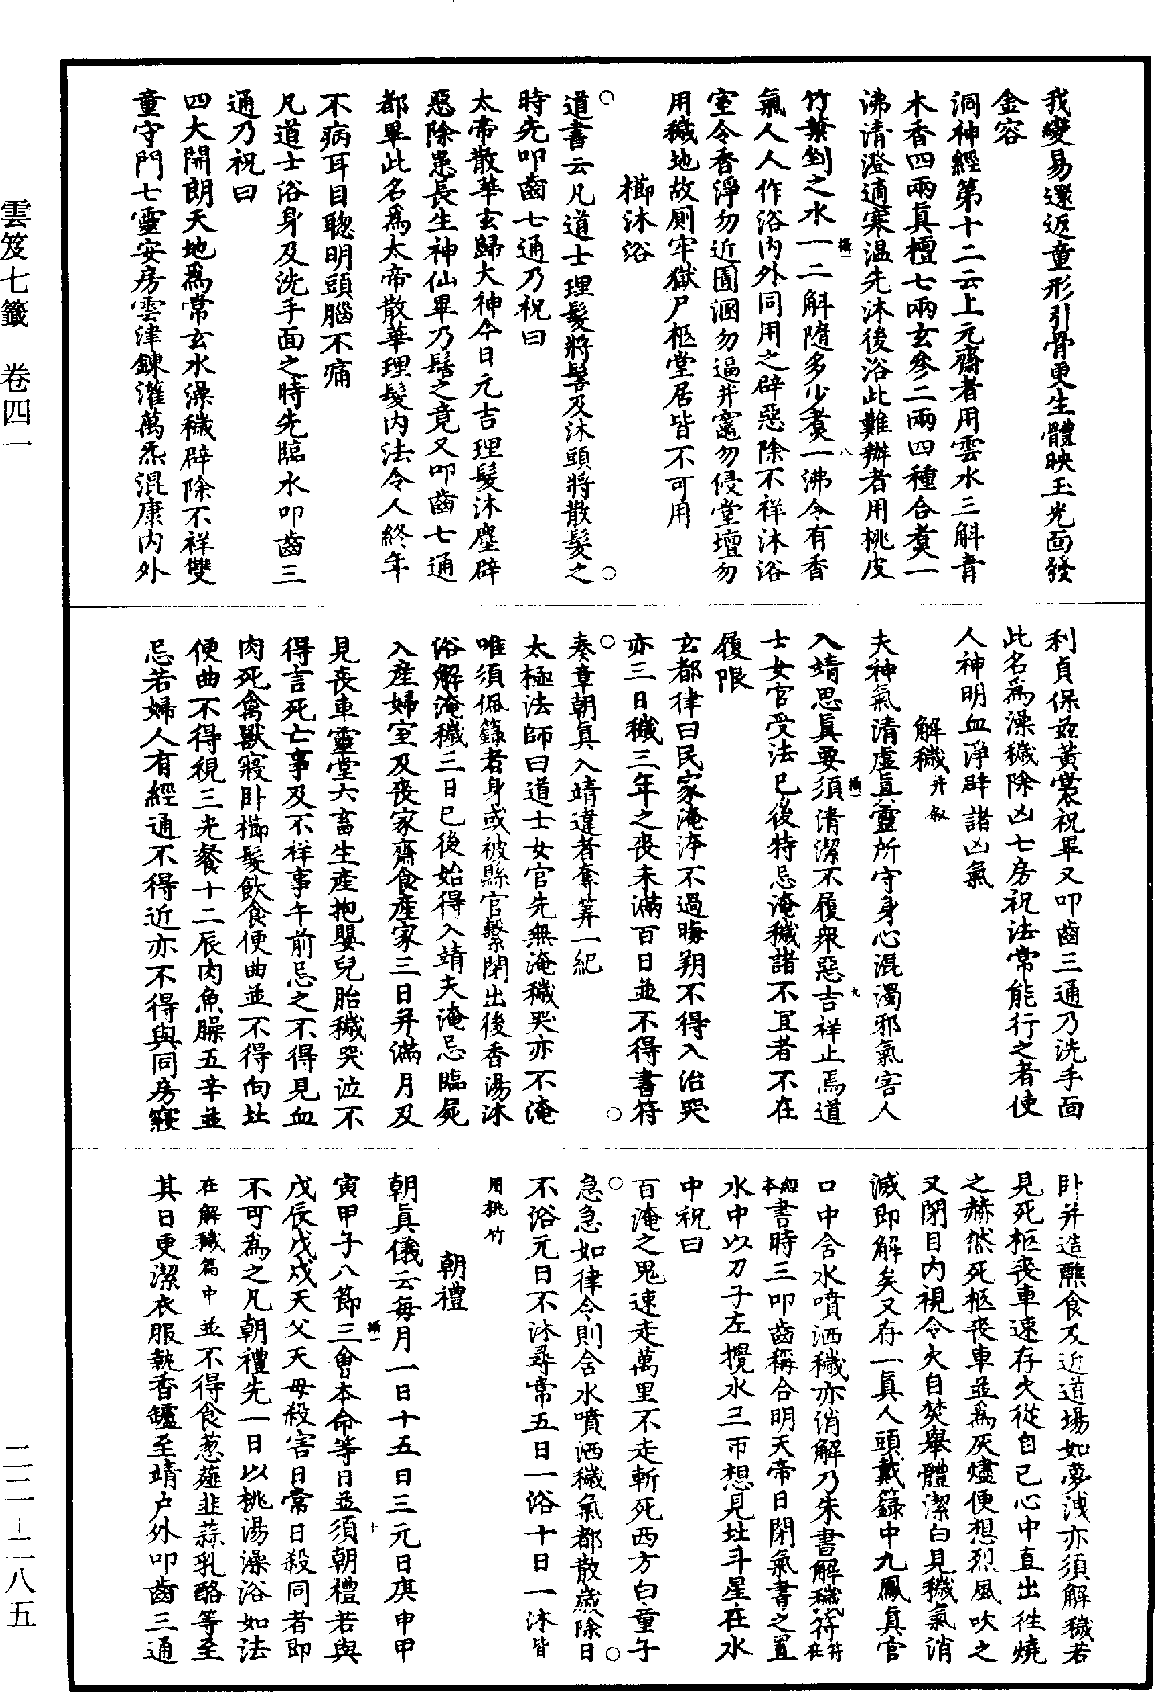 我變易還返童形引骨更生體映玉光面發
金容
洞神經第十二云上元齋者用雲水三斛青
木香四兩真檀七兩玄參二兩四種合煑一
沸清澄適寒温先沐後浴此難辦者用桃皮
竹葉剉之水一二斛隨多少煑一沸令有香
氣人人作浴内外同用之辟惡除不祥沐浴
室令香淨勿近圊溷勿逼井竈勿侵堂壇勿
用穢地故厠牢獄尸柩堂居皆不可用
櫛沐浴
道書云凡道士理髮將髻及沐頭將散髮之
時先叩齒七通乃祝曰
太帝散華玄歸大神今日元吉理髮沐塵辟
惡除患長生神仙畢乃髻之竟又叩齒七通
都畢此名爲太帝散華理髮内法令人終年
不病耳目聦明頭腦不痛
凡道士浴身及洗手面之時先臨水叩齒三
通乃祝曰
四大開朗天地爲常玄水澡穢辟除不祥雙
童守門七靈安房雲津鍊灌萬炁混康内外
利貞保兹黃裳祝畢又叩齒三通乃洗手面
此名爲澡穢除凶七房祝法常能行之者使
人神明血淨辟諸凶氣
解穢并叙
夫神氣清虛真靈所守身心混濁邪氣害人
入靖思真要須清潔不履衆惡吉祥止焉道
士女官受法已後特忌淹穢諸不宜者不在
履限
玄都律曰民家淹洿不過晦朔不得入治哭
亦三日穢三年之喪未滿百日並不得書符
奏章朝真入靖違者奪筭一紀
太極法師曰道士女官先無淹穢哭亦不淹
唯須佩籙者身或被縣官繫閉出後香湯沐
浴解淹穢三日已後始得入靖夫淹忌臨屍
入産婦室及喪家齋食産家三日并滿月及
見喪車靈堂六畜生產抱嬰兒胎穢哭泣不
得言死亡事及不祥事午前忌之不得見血
肉死禽獸寢卧櫛髮飲食便曲並不得向北
便曲不得視三光餐十二辰肉魚臊五辛並
忌若婦人有經通不得近亦不得與同房寢
卧并造醮食及近道場如夢洩亦須解穢若
見死柩喪車速存火從自己心中直出往燒
之赫然死柩喪車並爲灰燼便想烈風吹之
又閉目内視令火自焚舉體潔白見穢氣消
滅即解矣又存一真人頭戴籙中九鳳真官
口中含水噴洒穢亦消解乃朱書解穢符符在
經本書時三叩齒稱合明天帝日閉氣書之置
水中以刀子左攪水三帀想見北斗星在水
中祝曰
百淹之鬼速走萬里不走斬死西方白童子
急急如律令則含水噴洒穢氣都散歲除日
不浴元日不沐尋常五日一浴十日一沐皆
用桃竹
朝禮
朝真儀云每月一日十五日三元日庚申甲
寅甲子八節三會本命等日並須朝禮若與
戊辰戊戌戌天父天母殺害日常日殺同者即
不可爲之凡朝禮先一日以桃湯澡浴如法
在解穢篇中並不得食葱薤韭蒜乳酪等至
其日更潔衣服執香鑪至靖户外叩齒三通
雲笈七籤 卷四一
二二－二八五